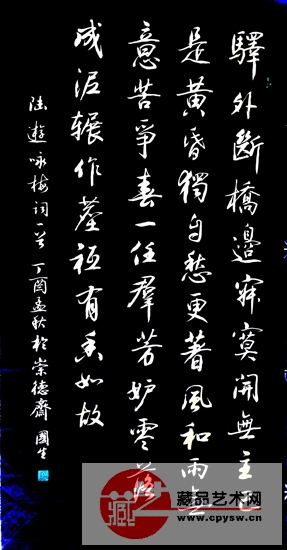 驛外斷橋邊寂寞開無主已
是黃昏獨自愁更著風和雨無
意苦爭春一任羣芳妒零落
成泥輾作塵祇有香如故
陆遊咏梅词一首丁酉孟秋於崇德齋國生
藏品艺术网
www.cpysw.cn